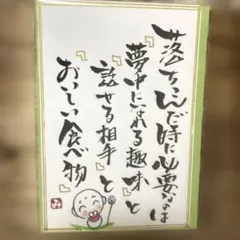 落ちこんだ時に必要なのは
夢中になれる趣味と
話せる相手と
おいしい食べ物